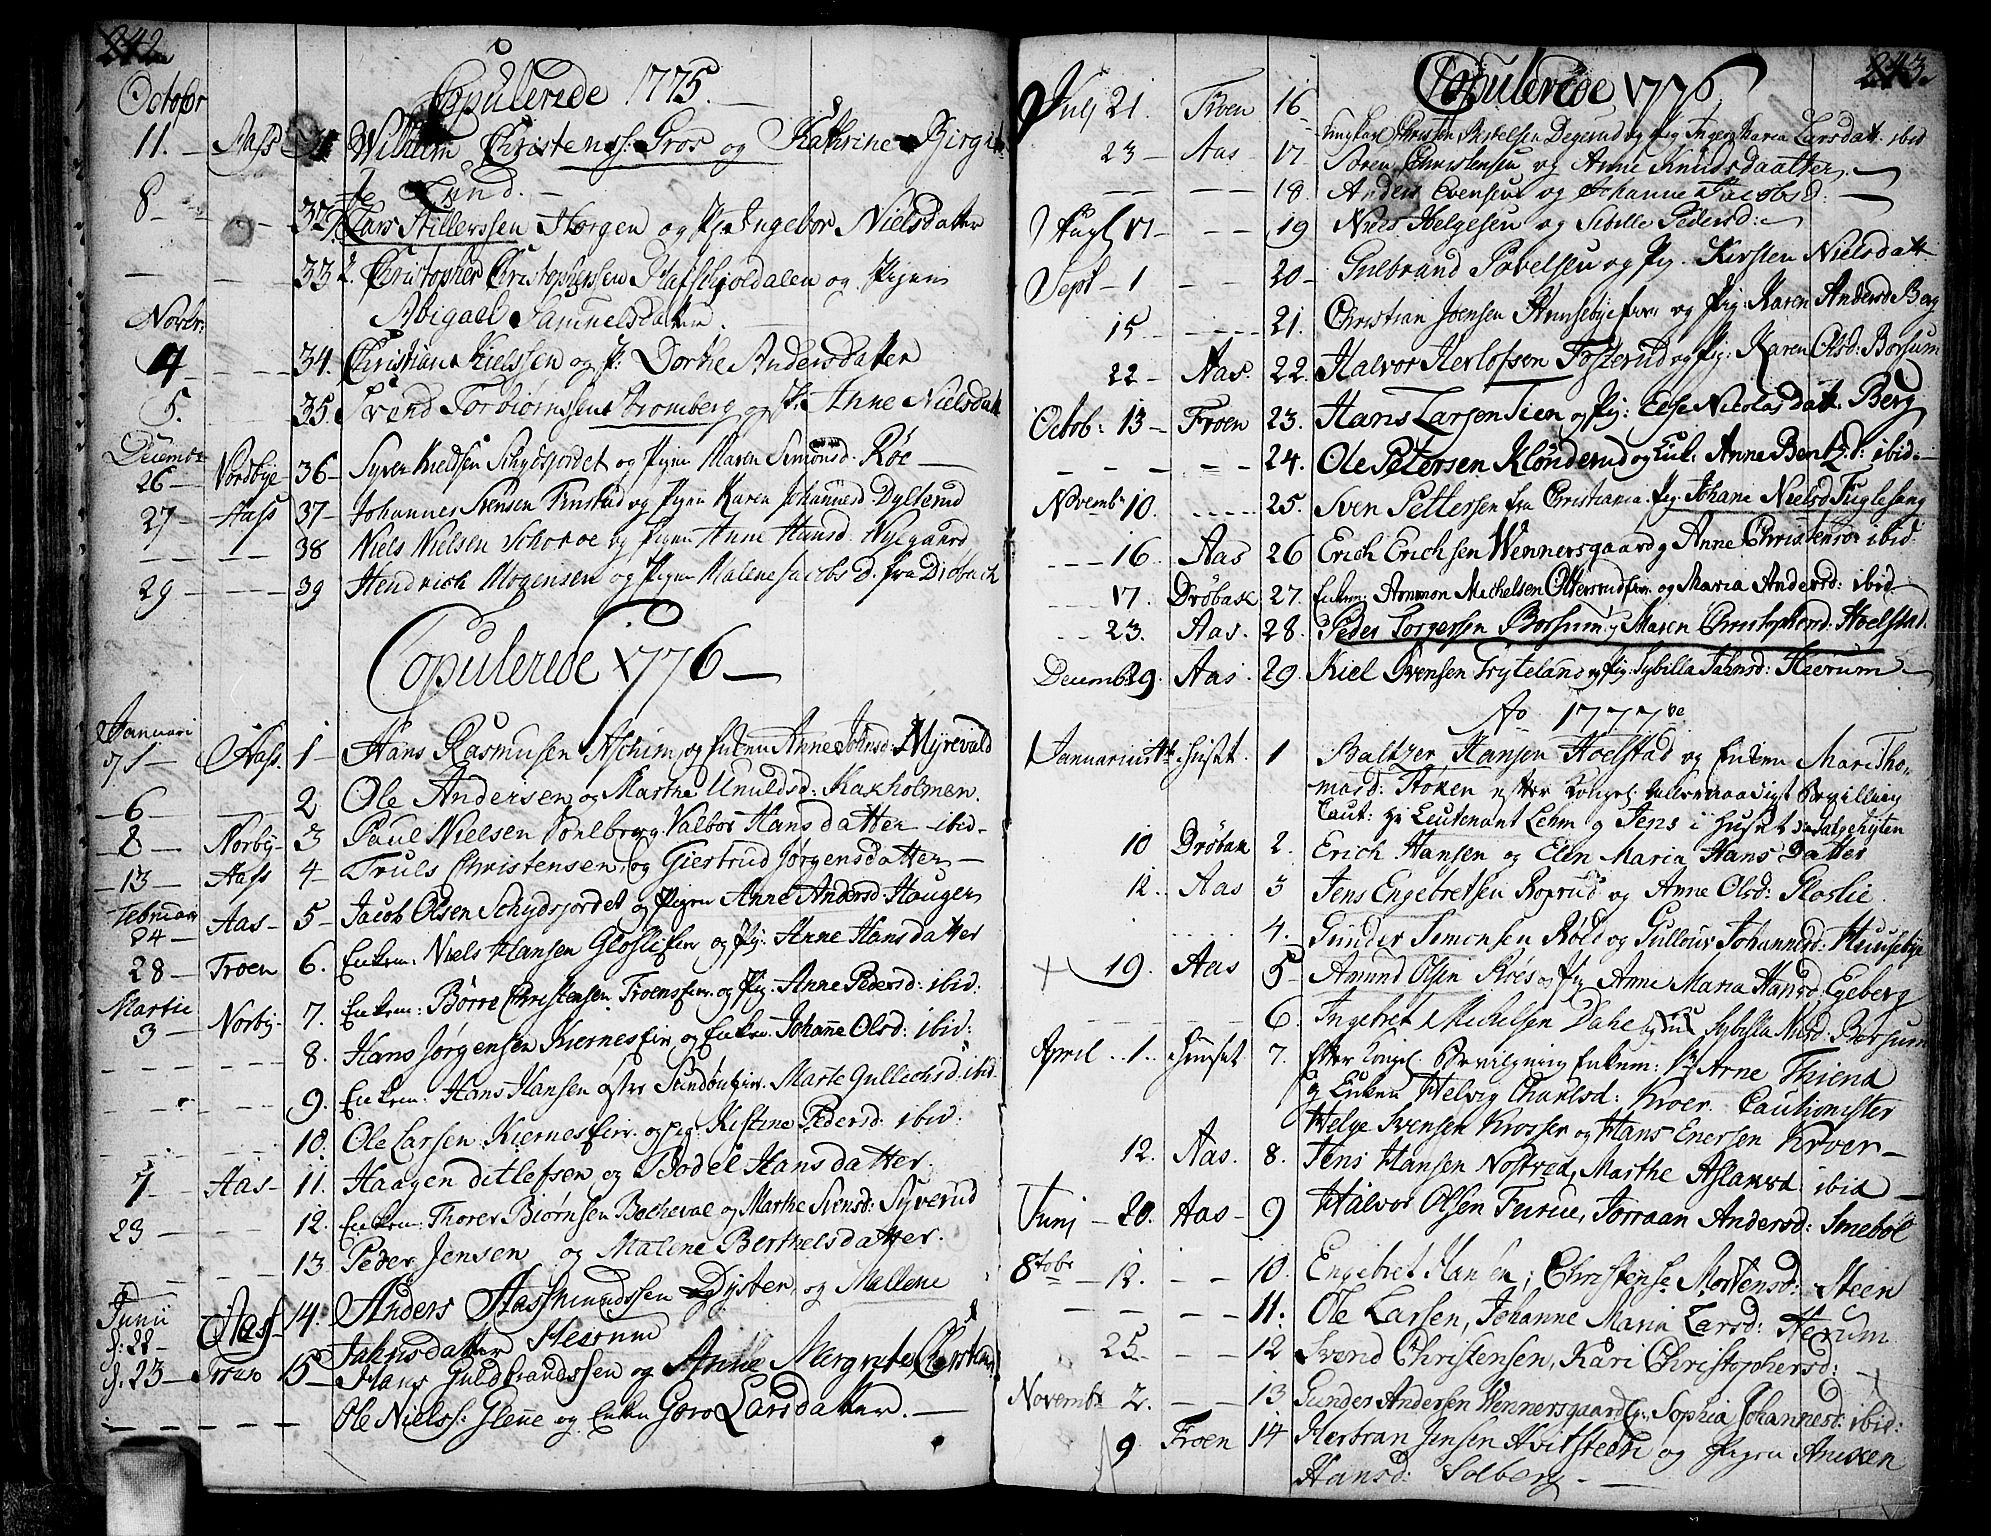 242
Copulerede 1775.
Octobr
11. Aass 31 Wilhelm Christenss: Gros og Kathrine Birgit
te Lund.
8 32. Lars Hillerssen Horgen og P. Ingebor Nielsdatter
33. Christopher Christophersen og Pigen
Abigael Samuelsdatter.
Novbr:
4 34. Christian Kielssen og P: Dorthe Andersdatter
5. 35. Svend Torbiørnssen Bromberg og P: Anne Nielsdatt
Decembr
26 Nordbye 36 Syver Kieldsen Schydsjordet og Pigen Maren Simonsd. Røe
27 Aass 37 Johannes Svensen Finstad og Pigen Karen Johannesd Dyllerud
38 Niels Nielsen og Pigen Anne Hansd. Nyegaard
29 39 Hendrich Mogensen og Pigen Malene Jacobs D. fra Drøbach
Copulerede 1776
Januari
1 Aass. 1 Hans Rasmusen Aschim, og Enken Anne Johnsd: Myrevald
6 2 Ole Andersen og Marthe Unuldsd: Kaxholmen.
8 Norby 3 Paul Nielsen og Valbor Hansdatter ibid
13 Aass 4 Truls Christensen og Giertrud Jørgensdatter
Februari
24 Aas 5 Jacob Olsen Schydsjordet og Pigen Anne Andersd. Haugen
6. Enkem: Niels Hansen Glosli og Pig: Anne Hansdatter
28 Froen
Martii 7. Enkem: Børre Christensen Froen og Pig. Anne Pedersd: ibid:
3 Norby
8. Hans Jørgensen Kiernes og Enken Johanne Olsd: ibid:
9. Enkem: Hans Hansen Marte Gullichsd: ibid.
10. Ole Larsen Kiernes og Pig. Kistine Pedersd: ibid:
7 Aas 11. Haagen Ditlefsen og Bodel Hansdatter.
12. Enkem: Thorer Biørnsen Bocheval og Marthe Svensd: Syverud
23 13 Peder Jensen og Malene Berthelsdatter.
Junii
d: 22 Aass 14. Anders Aassmundssen Dyster, og Mallene
Jahnsdatter Heerum
d: 23 Froen 15 Hans Guldbrandssen og Anne Margrete Christians
Ole Nielss: Glenne og Enke Goro Larsdatter.
243.
Copulerede 1776
Julj 21. Froen 16 Christen Axelsen Degerud og Pig Inger Maria Larsdatt. ibid
23 Aas 17 Søren Christensen og Anne Knudsdaatter
18. Anders Evensen og Johanne Jacobsd:
Aug 17 19 Niels Helgesen og Sibille Pedersd:
Sept 1 20 Gulbrand Povelsen og Pig. Kirsten Nielsdatt
15 21. Christian Joensen Hunsebye og Pig: Karen Andersd Berg
22 Aas. 22. Halvor Herlofssen Fosterud og Pig: Karen Olsd: Borsum
Octob: 13 Froen 23. Hans Larsen Sien og Pig: Else Nicolasdatt. Berg
24. Ole Petersen Klønderud og Enk: Anne Bentzd: ibid.
Novembr 10. 25. Sven Pettersen fra Christiania. Pig Johane Nielsd Fuglesang
16 Aas 26 Erich Erichsen Wennersgaard og Anne Christensd: ibid:
17. Drøbak 27. Enkem: Ammon Michelsen og Maria Andersd: ibid
23. Aas. 28. Peder Torgersen Borsum og Maren Christophersd: Hoelstad.
Decembr 29. Aas. 29. Kiel Svensen Fryteland og Pig: Sybilla Jahnsd: Heerum
Ao 1777
Januarius Huset 1 Baltzer Hansen Hoelstad og Enken Mari Tho-
masd: Hoxen efter Kongel: Allernaadigst Bevillning
Caut: Hr Leutenant Lehm og Jens i Huset
10 Drøbak 2. Erich Hansen og Elen Maria Hans Datter
12. Aas 3 Jens Engebretsen Roprud og Anne Olsd: Gloslie.
4. Gunder Simonsen Røld og Gullour Johannesd: Hunsebye
19. Aas 5 Amund Olsen Roes og Pig Anne Maria Hansd: Egeberg
6. Ingebret Michelsen Dahl og Sybilla Nilsd: Borsum
April 1. Huuset 7. Efter Kongel Bevilgning Enkem: Arne Thiend
og Enken Helvig Charlsd: Kroer. Cautionister
Helge Svensen Krosser og Hans Enersen Kroer
12. Aas. 8. Jens Hansen Nostvod, Marthe Aslansd: ibid
Junj 20. Aas 9 Halvor Olsen Furue, Jorraan Andersd: Smebøl
8tobr 12. 10. Engebret Hansen; Christense Mortensd: Steen
11. Ole Larsen, Johanne Maria Larsd: Herum
25. 12 Svend Christensen, Kari Christophersd:
Novembr 2. 13. Gunder Andersen Wennersgaard, Sophia Johannesd: ibid:
9. Froen 14 Herbran Jensen Hvitsteen og Pigen Aneken
Hansd: Solberg